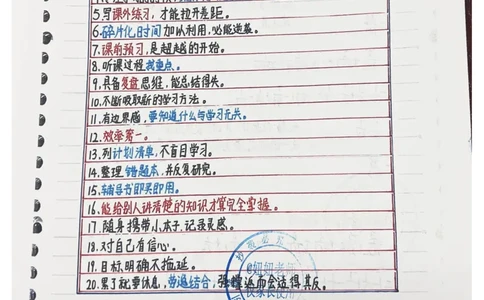 5.写课外练习,才能拉开差距。
6.碎片化时间加以利用,必能逆袭。
7.课前预习,是超越的开始。
8.听课过程找重点。
9.具备复盘思维,能总结得失。
10.不断吸取新的学习方法。
11.有边界感,要知道什么与学习无关。
12.效率第一。
13.列计划清单,不盲目学习。
14.整理错题本,并反复研究。
15.辅导书即买即用。
16.能给别人讲清楚的知识才算完全掌握。
17.随身携带小本子,记录灵感。
18.对自己有信心。
19.目标明确不拖延。
20.累了就要休息,劳逸结合,强撑返而会适得其反。